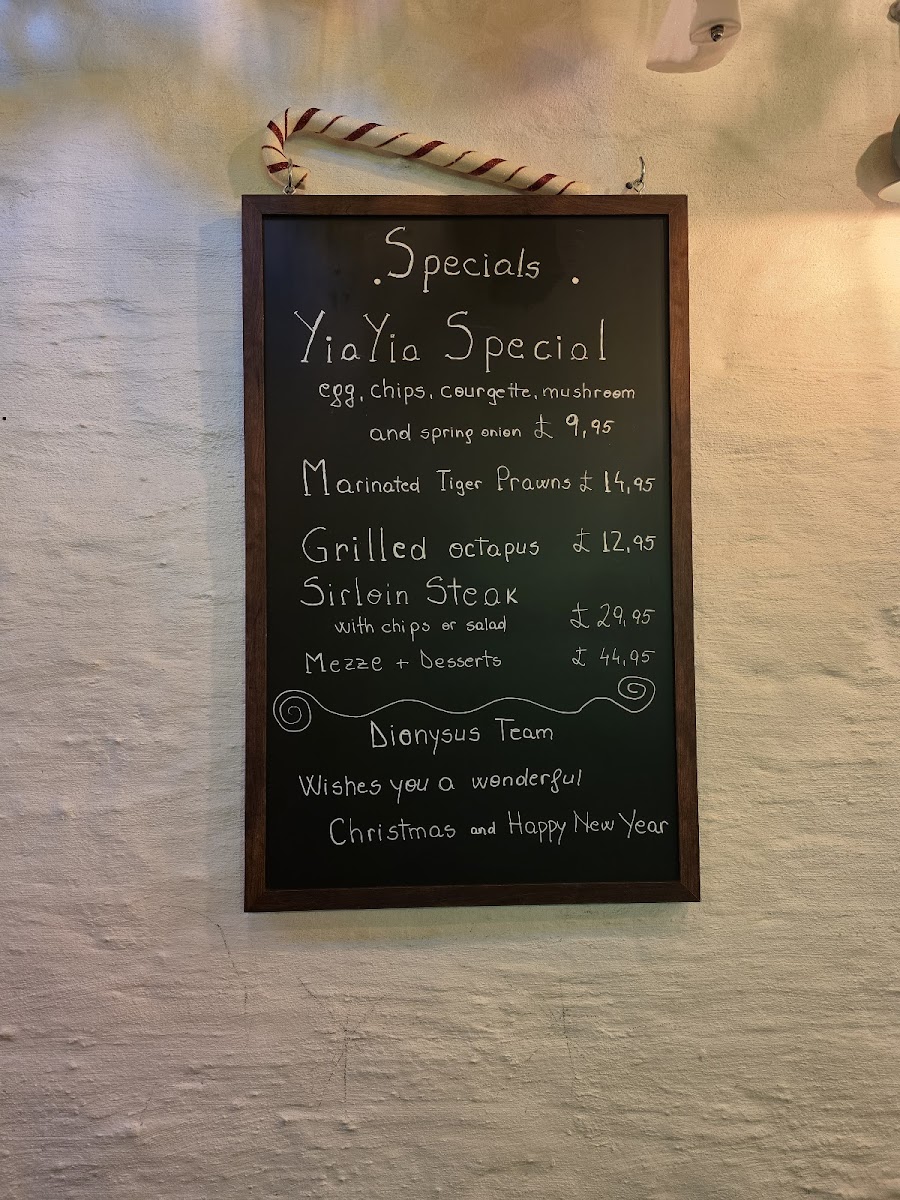 . Specials .
YiaYia Special
egg, chips, courgette, mushroom
and spring onion £ 9,95
Marinated Tiger Prawns £ 14,95
Grilled octapus £ 12,95
Sirloin Steak
with chips or salad £ 29,95
Mezze + Desserts £ 44,95
Dionysus Team
Wishes you a wonderful
Christmas and Happy New Year